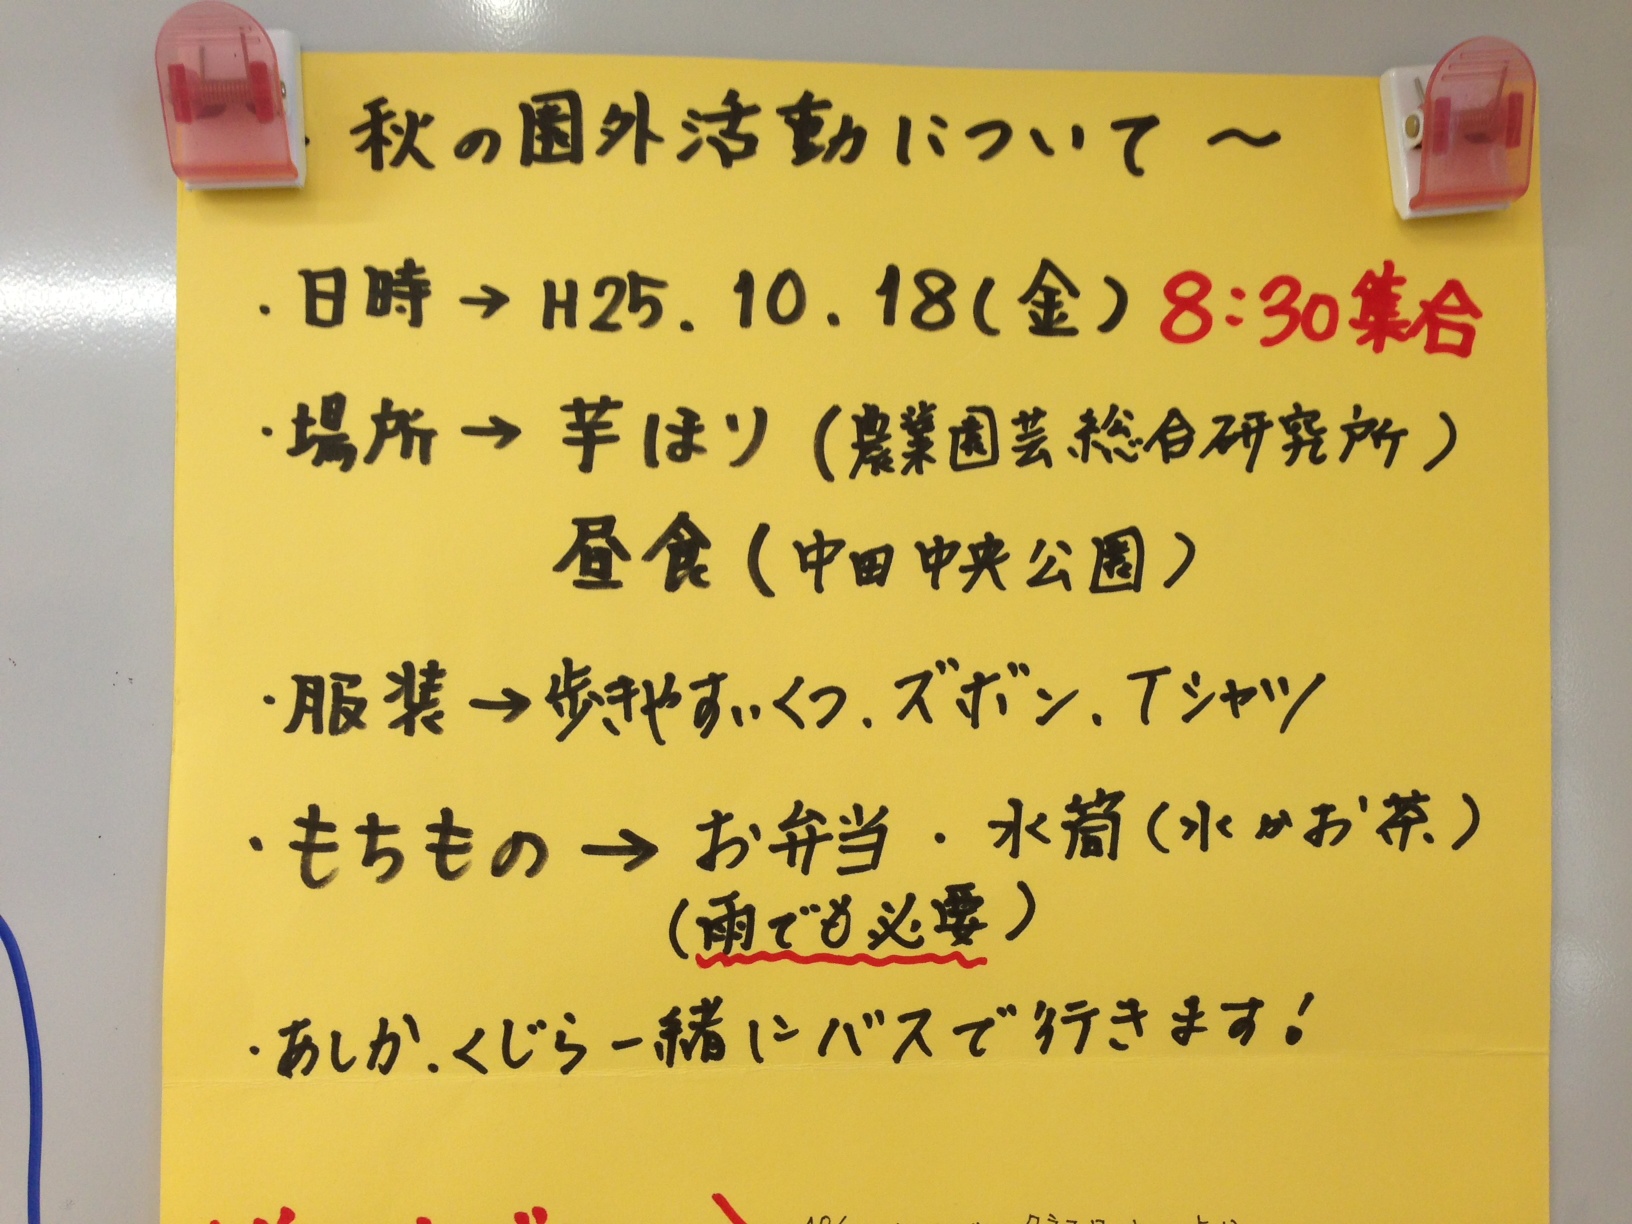 秋の園外活動について～
・日時→H25.10.18(金) 8:30集合
・場所→芋ほり(農業園芸総合研究所)
昼食(中田中央公園)
・服装→歩きやすいくつ、ズボン、Tシャツ
・もちもの→お弁当・水筒(水かお茶)
(雨でも必要)
・あしか、くじら一緒にバスで行きます!